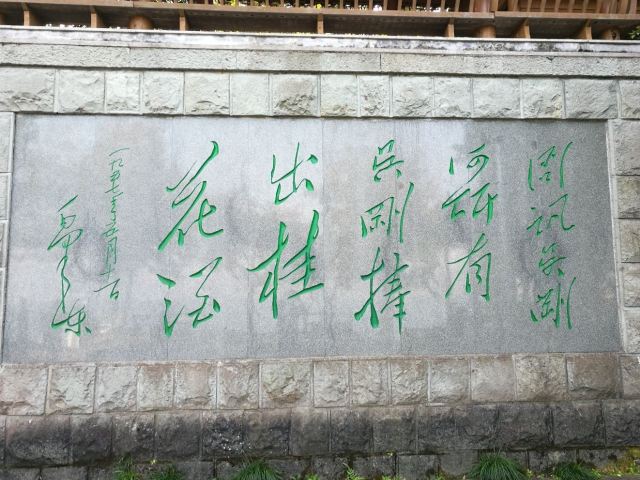 问讯吴刚
何所有
吴刚捧
出桂
花酒
一九五七年五月十一日
毛泽东